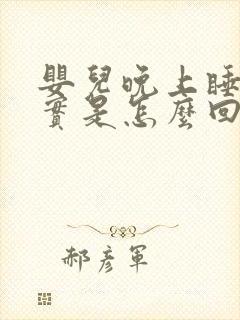 嬰兒晚上睡
實是怎麼回
郝彥軍